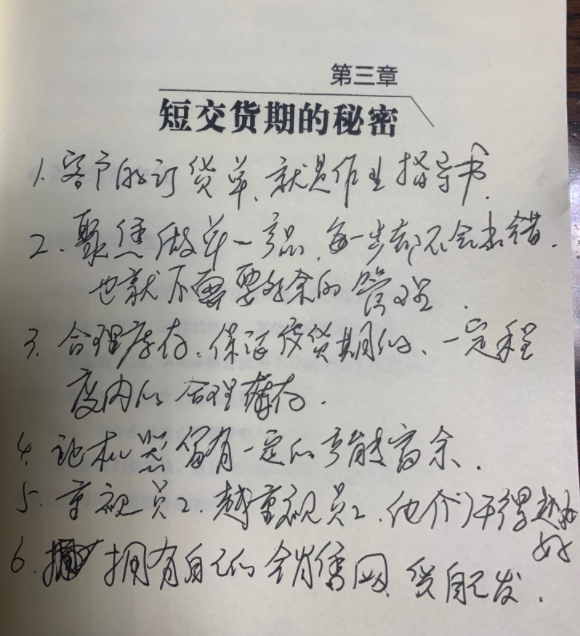 第三章
短交货期的秘密
1、客户的订货单、就是作业指导书.
2、聚焦做单一产品,每一步都不会出错.
也就不需要多余的管理.
3、合理库存、保证交货期的、一定程
度内的合理库存.
4、让机器留有一定的产能富余.
5、重视员工、越重视员工、他们干得越
好
6、拥有自己的全销售网、货自己发.